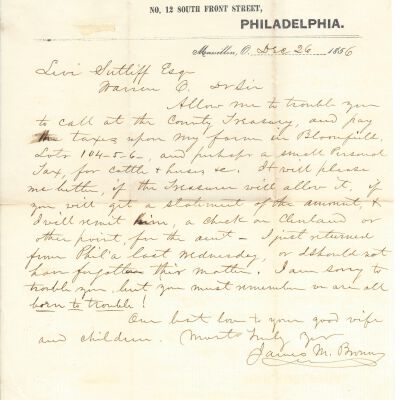 NO. 12 SOUTH FRONT STREET,
PHILADELPHIA.
Massillon, O. Dec 26 1856
Levi Sutliff Esqr
Warren O. Dr Sir
Allow me to trouble you
to call at the County Treasury, and pay
the taxes upon my farm in Bloomfield,
Lots 104-5-6-, and perhaps a small Personal
Tax, for cattle & horses &c. It will please
me better, if the Treasurer will allow it, if
you will get a statement of the amount, &
I will remit him, a check on Cleveland or
other point, for the amt - I just returned
from Phil'a last Wednesday, or I should not
have forgotten this matter. I am sorry to
trouble you, but you must remember we are all
born to trouble!
Our best love to your good wife
and children. Most truly yrs
James M. Brown